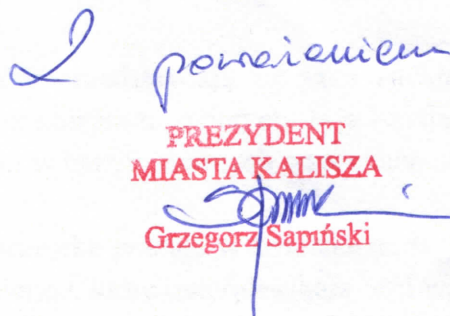 Z poważaniem
PREZYDENT
MIASTA KALISZA
Grzegorz Sapiński